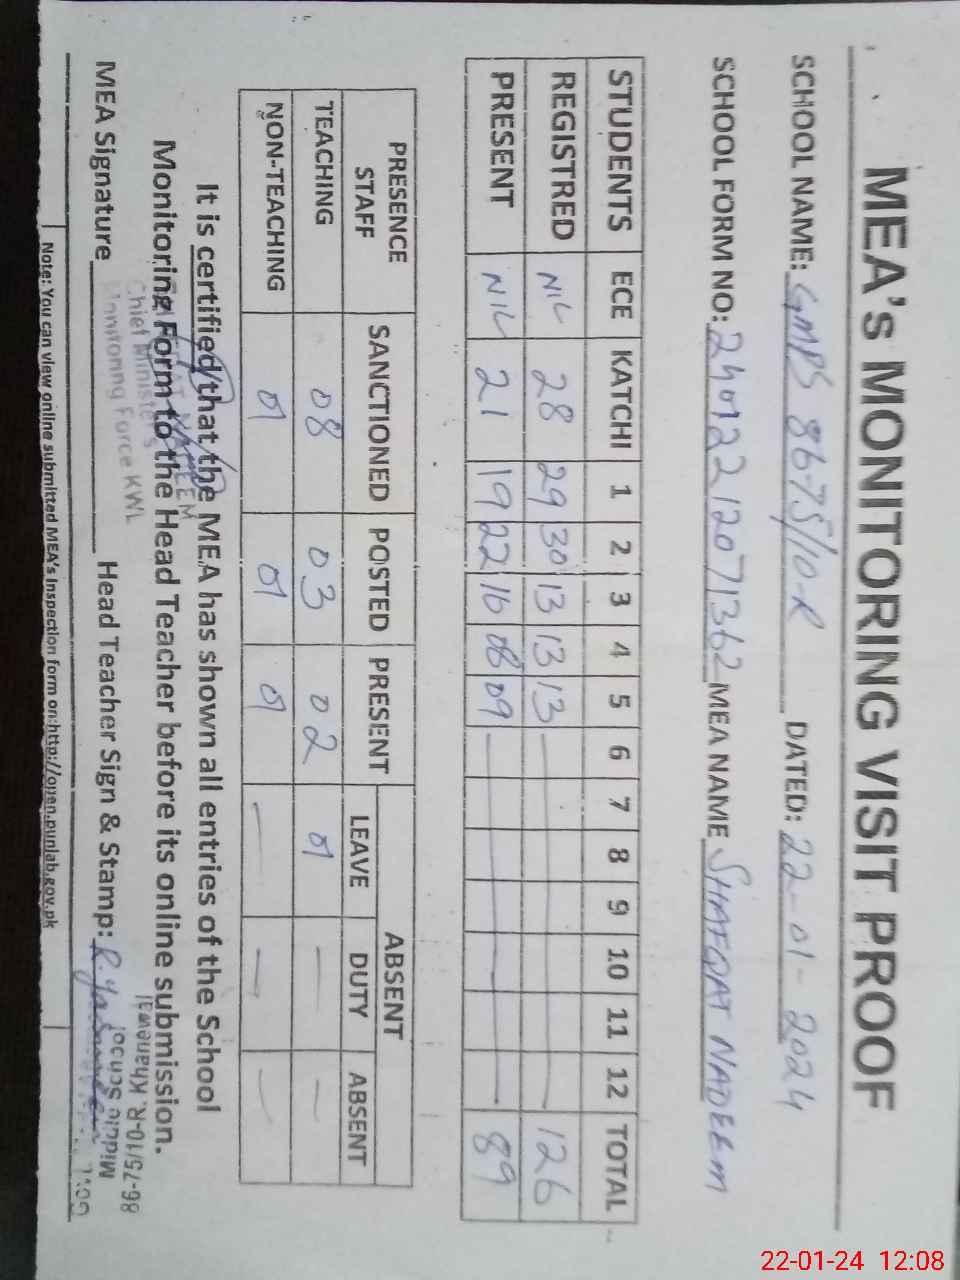 MEA's MONITORING VISIT PROOF
SCHOOL NAME: GMPS 86-75/10-R DATED: 22-01-2024
SCHOOL FORM NO: MEA NAME SHAFQAT NADEEM
STUDENTS ECE KATCHI 1 2 3 4 5 6 7 8 9 10 11 12 TOTAL
REGISTRED NIL 28 29 30 13 13 13 — 126
PRESENT NIL 21 19 22 10 08 09 — 89
PRESENCE STAFF SANCTIONED POSTED PRESENT ABSENT
LEAVE DUTY ABSENT
TEACHING 08 03 02 01 — —
NON-TEACHING 01 01 01 — — —
It is certified that the MEA has shown all entries of the School
Monitoring Form to the Head Teacher before its online submission.
NADEEM
Chief Minister's
Monitoring Force KWL
86-75/10-R, Khanewal
Middle School
MEA Signature Head Teacher Sign & Stamp: R. Yasmeen
Note: You can view online submitted MEA's Inspection form on:http://open.punjab.gov.pk
22-01-24 12:08